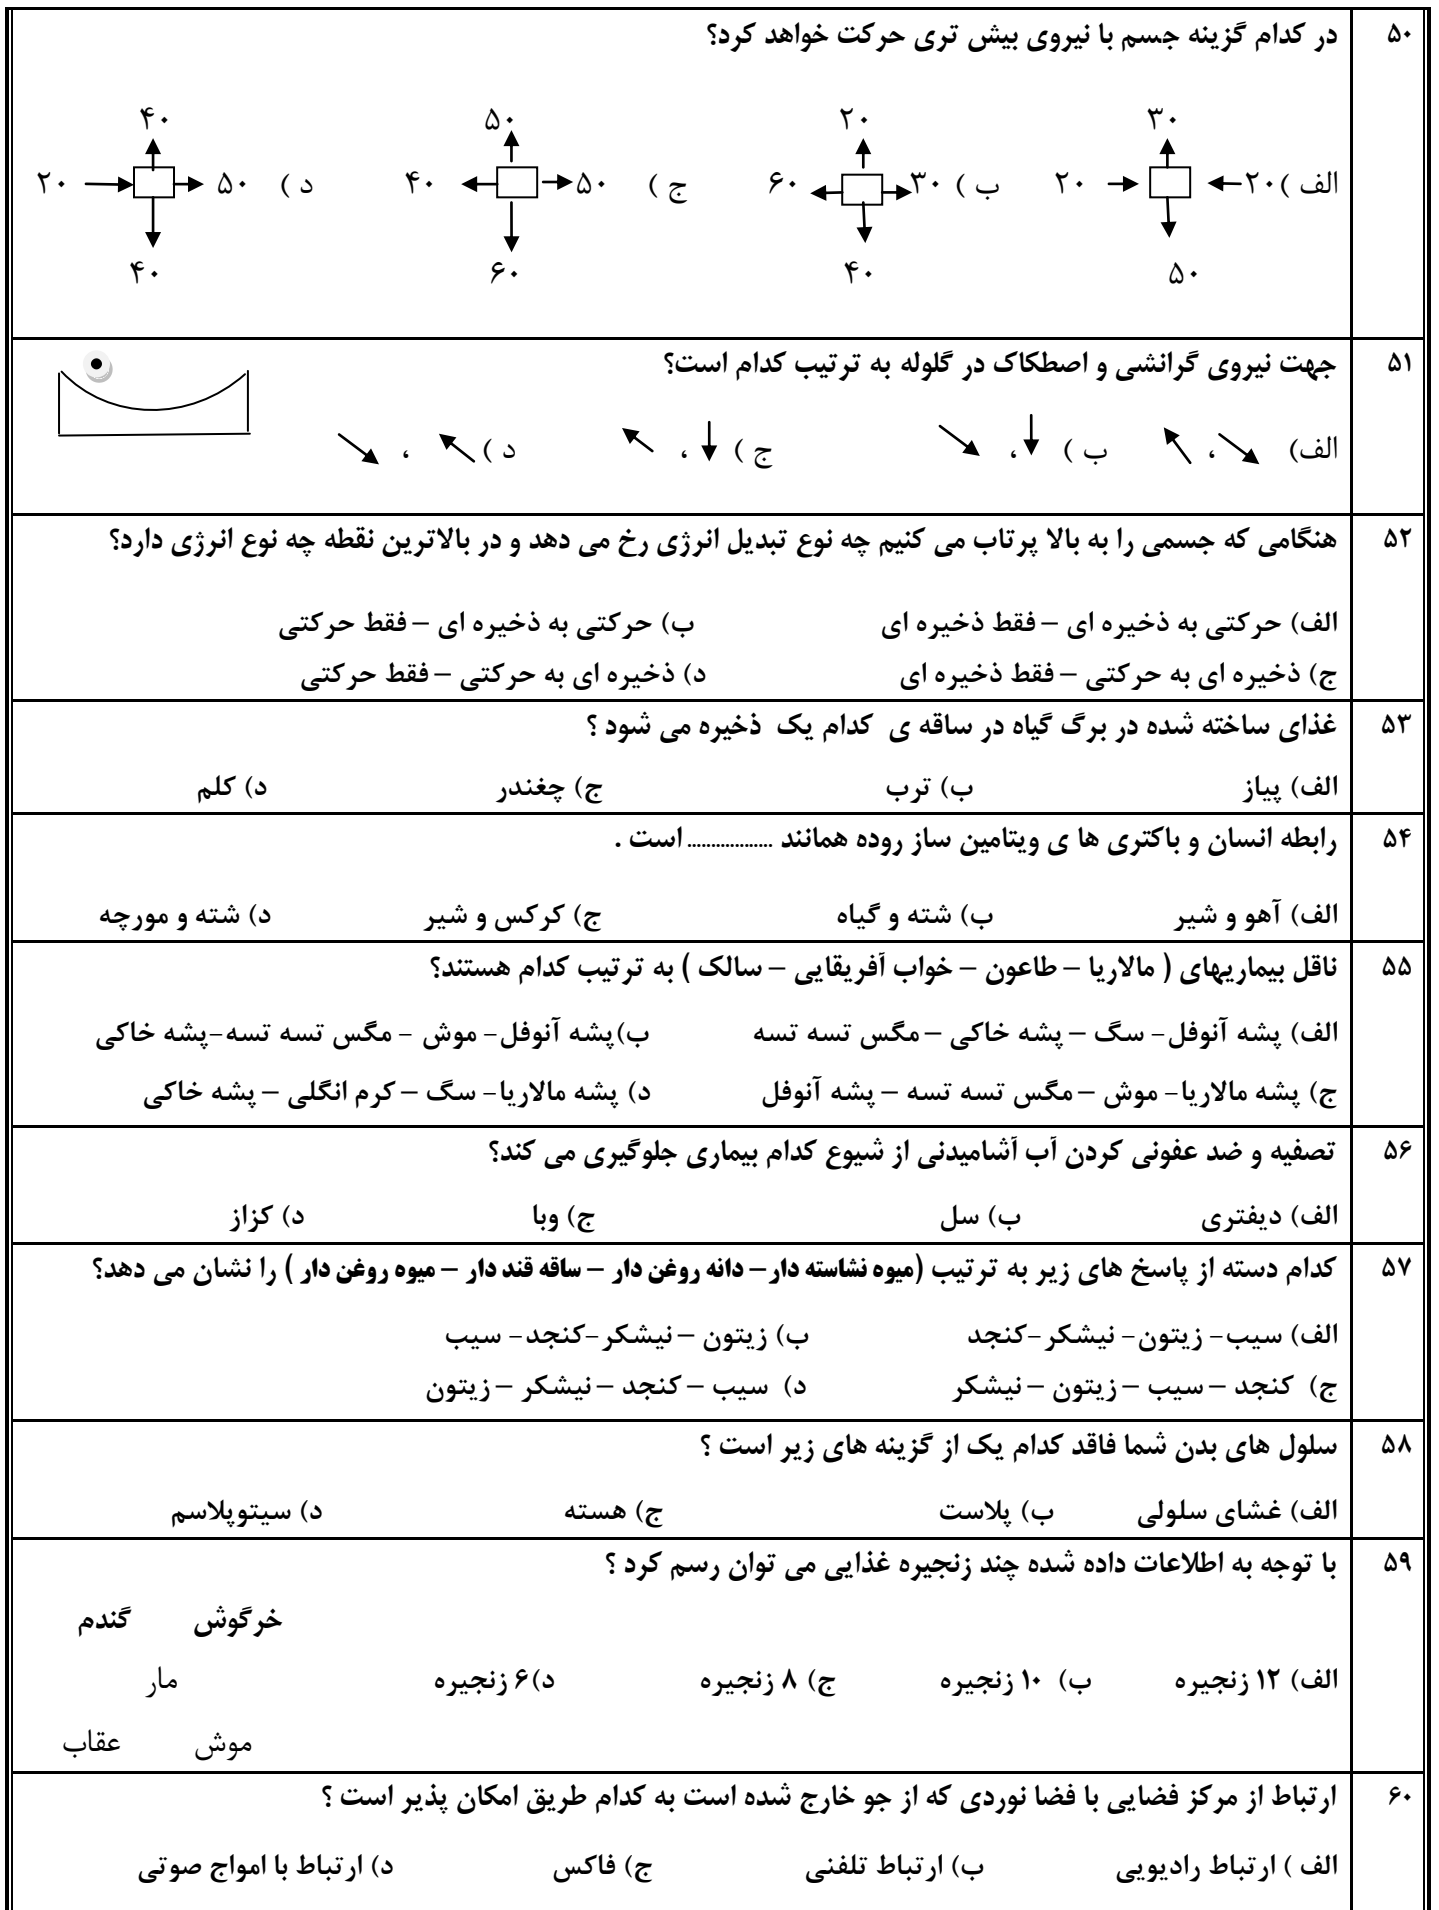 ۵۰ در کدام گزینه جسم با نیروی بیش تری حرکت خواهد کرد؟
۳۰ ۲۰ ۵۰ ۴۰
الف ) ۲۰ ۲۰ ب ) ۳۰ ۶۰ ج ) ۵۰ ۴۰ د ) ۵۰ ۲۰
۵۰ ۴۰ ۶۰ ۴۰
۵۱ جهت نیروی گرانشی و اصطکاک در گلوله به ترتیب کدام است؟
الف) ، ب ) ، ج ) ، د ) ،
۵۲ هنگامی که جسمی را به بالا پرتاب می کنیم چه نوع تبدیل انرژی رخ می دهد و در بالاترین نقطه چه نوع انرژی دارد؟
الف) حرکتی به ذخیره ای – فقط ذخیره ای ب) حرکتی به ذخیره ای – فقط حرکتی
ج) ذخیره ای به حرکتی – فقط ذخیره ای د) ذخیره ای به حرکتی – فقط حرکتی
۵۳ غذای ساخته شده در برگ گیاه در ساقه ی کدام یک ذخیره می شود ؟
الف) پیاز ب) ترب ج) چغندر د) کلم
۵۴ رابطه انسان و باکتری ها ی ویتامین ساز روده همانند ................. است .
الف) آهو و شیر ب) شته و گیاه ج) کرکس و شیر د) شته و مورچه
۵۵ ناقل بیماریهای ( مالاریا – طاعون – خواب آفریقایی – سالک ) به ترتیب کدام هستند؟
الف) پشه آنوفل- سگ – پشه خاکی – مگس تسه تسه ب)پشه آنوفل- موش - مگس تسه تسه-پشه خاکی
ج) پشه مالاریا- موش – مگس تسه تسه – پشه آنوفل د) پشه مالاریا- سگ – کرم انگلی – پشه خاکی
۵۶ تصفیه و ضد عفونی کردن آب آشامیدنی از شیوع کدام بیماری جلوگیری می کند؟
الف) دیفتری ب) سل ج) وبا د) کزاز
۵۷ کدام دسته از پاسخ های زیر به ترتیب (میوه نشاسته دار– دانه روغن دار – ساقه قند دار – میوه روغن دار ) را نشان می دهد؟
الف) سیب- زیتون- نیشکر-کنجد ب) زیتون – نیشکر-کنجد- سیب
ج) کنجد – سیب – زیتون – نیشکر د) سیب – کنجد – نیشکر – زیتون
۵۸ سلول های بدن شما فاقد کدام یک از گزینه های زیر است ؟
الف) غشای سلولی ب) پلاست ج) هسته د) سیتوپلاسم
۵۹ با توجه به اطلاعات داده شده چند زنجیره غذایی می توان رسم کرد ؟
خرگوش گندم
الف) ۱۲ زنجیره ب) ۱۰ زنجیره ج) ۸ زنجیره د)۶ زنجیره مار
موش عقاب
۶۰ ارتباط از مرکز فضایی با فضا نوردی که از جو خارج شده است به کدام طریق امکان پذیر است ؟
الف ) ارتباط رادیویی ب) ارتباط تلفنی ج) فاکس د) ارتباط با امواج صوتی